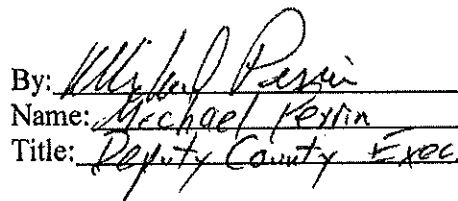 By: Michael Perrin
Name: Michael Perrin
Title: Deputy County Exec.